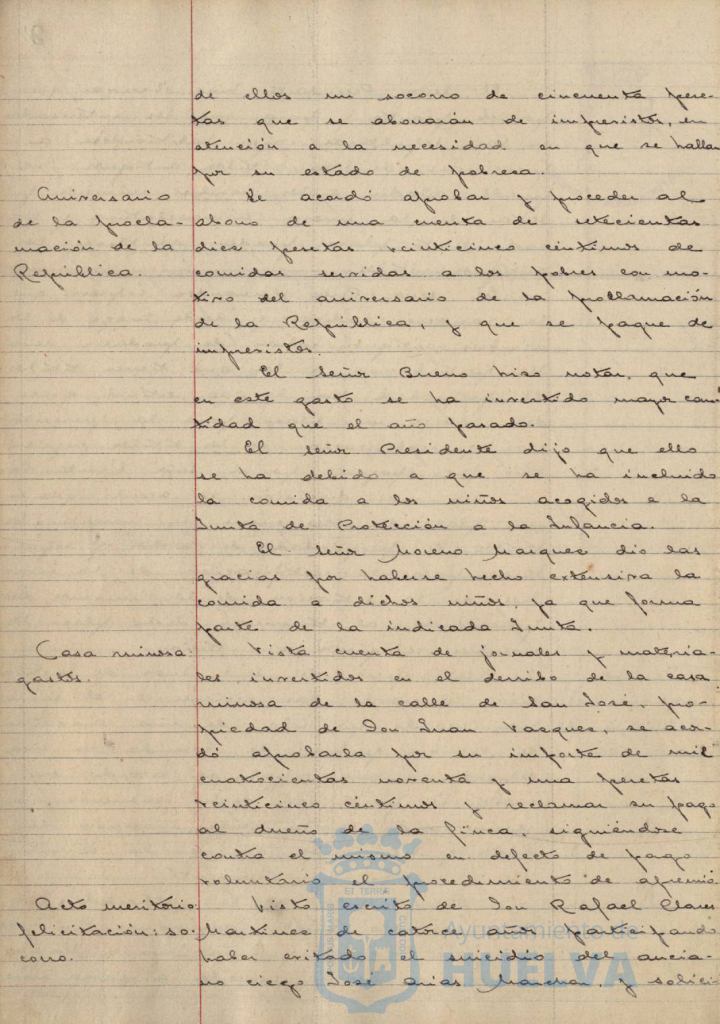 de ellos un socorro de cincuenta pese-
tas que se abonarán de imprevistos, en
atención a la necesidad en que se hallan
por su estado de pobresa.
Aniversario
de la procla-
mación de la
República.
Se acordó aprobar y proceder al
abono de una cuenta de setecientas
dies pesetas veinticinco céntimos de
comidas servidas a los pobres con mo-
tivo del aniversario de la proclamación
de la República, y que se pague de
imprevistos.
El señor Bueno hiso notar, que
en este gasto se ha invertido mayor can-
tidad que el año pasado.
El señor Presidente dijo que ello
se ha debido a que se ha incluido
la comida a los niños acogidos a la
Junta de Protección a la Infancia.
El señor Moreno Marques dio las
gracias por haberse hecho extensiva la
comida a dichos niños, ya que forma
parte de la indicada Junta.
Casa ruinosa:
gastos.
Vista cuenta de jornales y materia-
les invertidos en el derribo de la casa
ruinosa de la calle de San José, pro-
piedad de Don Juan Vasques, se acor-
dó aprobarla por su importe de mil
cuatrocientas noventa y una pesetas
veinticinco céntimos y reclamar su pago
al dueño de la finca, siguiéndose
contra el mismo en defecto de pago
voluntario el procedimiento de apremio
Acto meritorio:
felicitación: so-
corro.
Visto escrito de Don Rafael Clares
Martines de catorce años participando
haber evitado el suicidio del ancia-
no ciego José Arias Marchan, y solici-
Ayuntamiento de
HUELVA